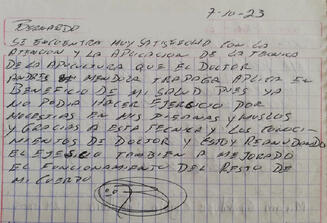 7-10-23
BERNARDO
SE ENCUENTRA MUY SATISFECHO CON LA
ATENCION Y LA APLICACION DE LA TECNICA
DE LA APICULTURA QUE EL DOCTOR
ANDRES MENDOZA TRAPAGA APLICA EN
BENEFICIO DE MI SALUD PUES YA
NO PODIA HACER EJERCICIO POR
MOLESTIAS EN MIS PIERNAS Y MUSLOS
Y GRACIAS A ESTA TECNICA Y LOS CONOCI-
MIENTOS DE DOCTOR Y ESTOY REANUDANDO
EL EJESCO TAMBIEN A MEJORADO
EL FUNCIONAMIENTO DEL RESTO DE
MI CUERPO